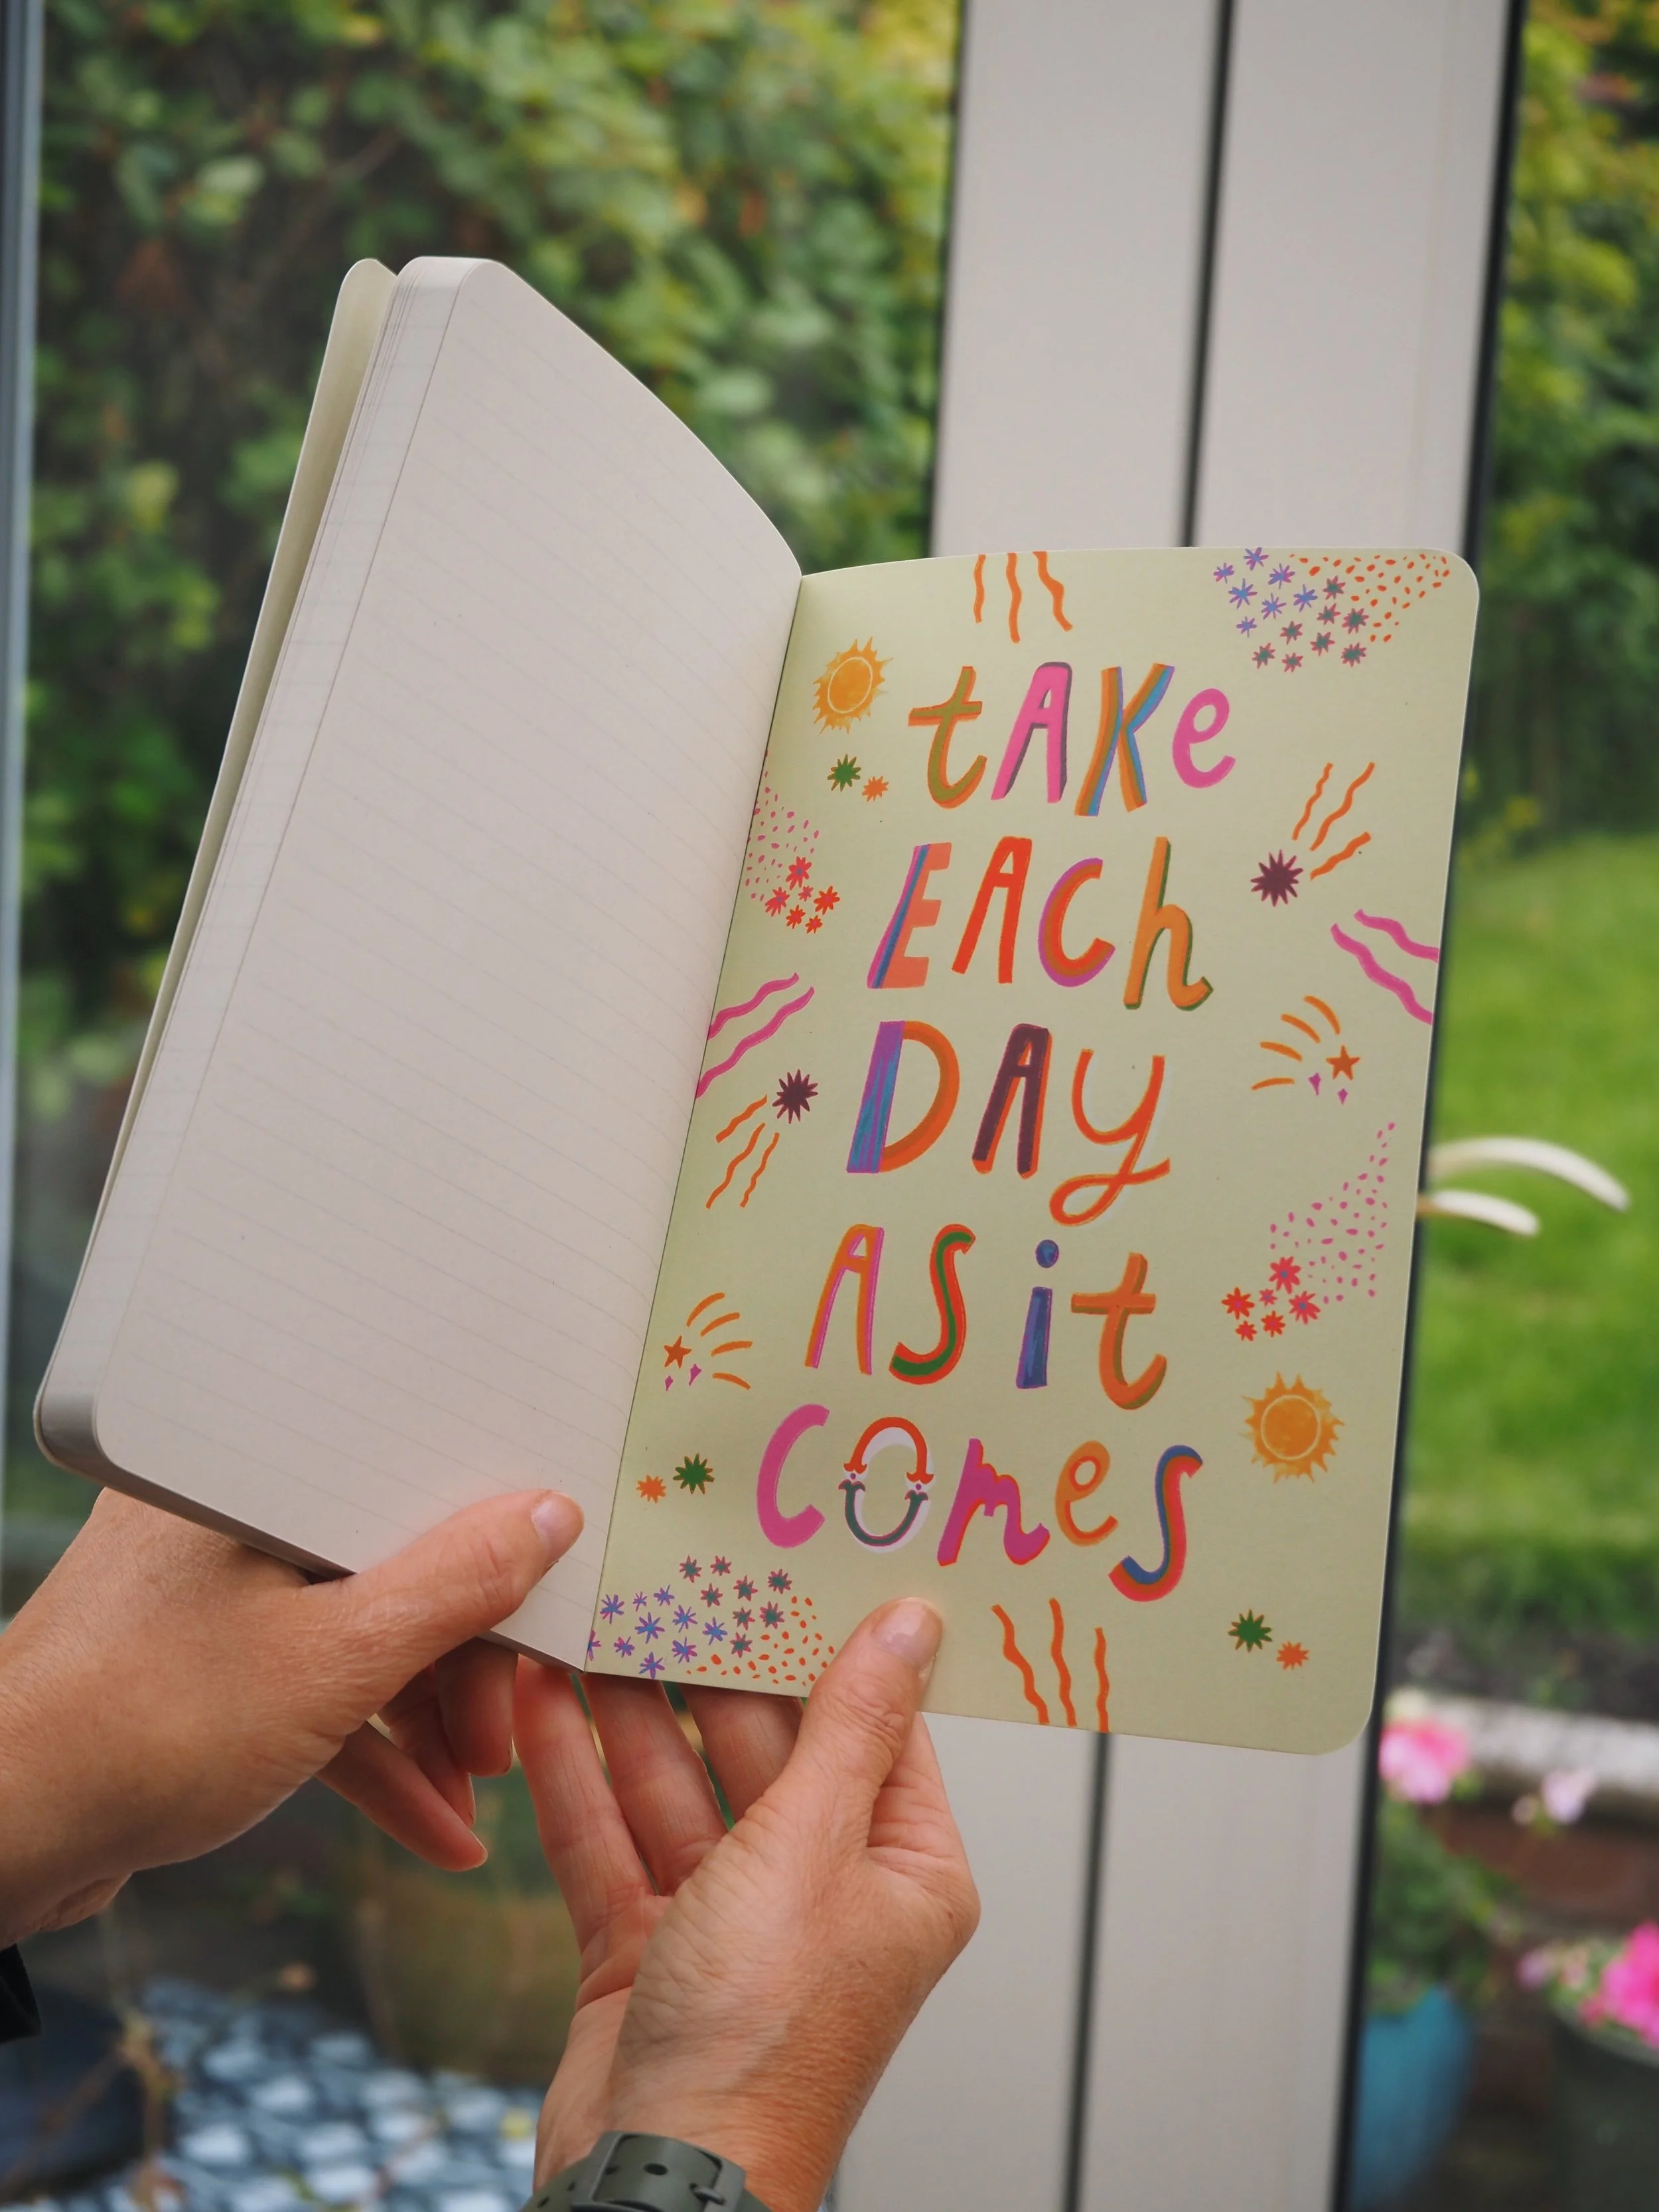 tAKe
EACh
DAy
AS it
Comes